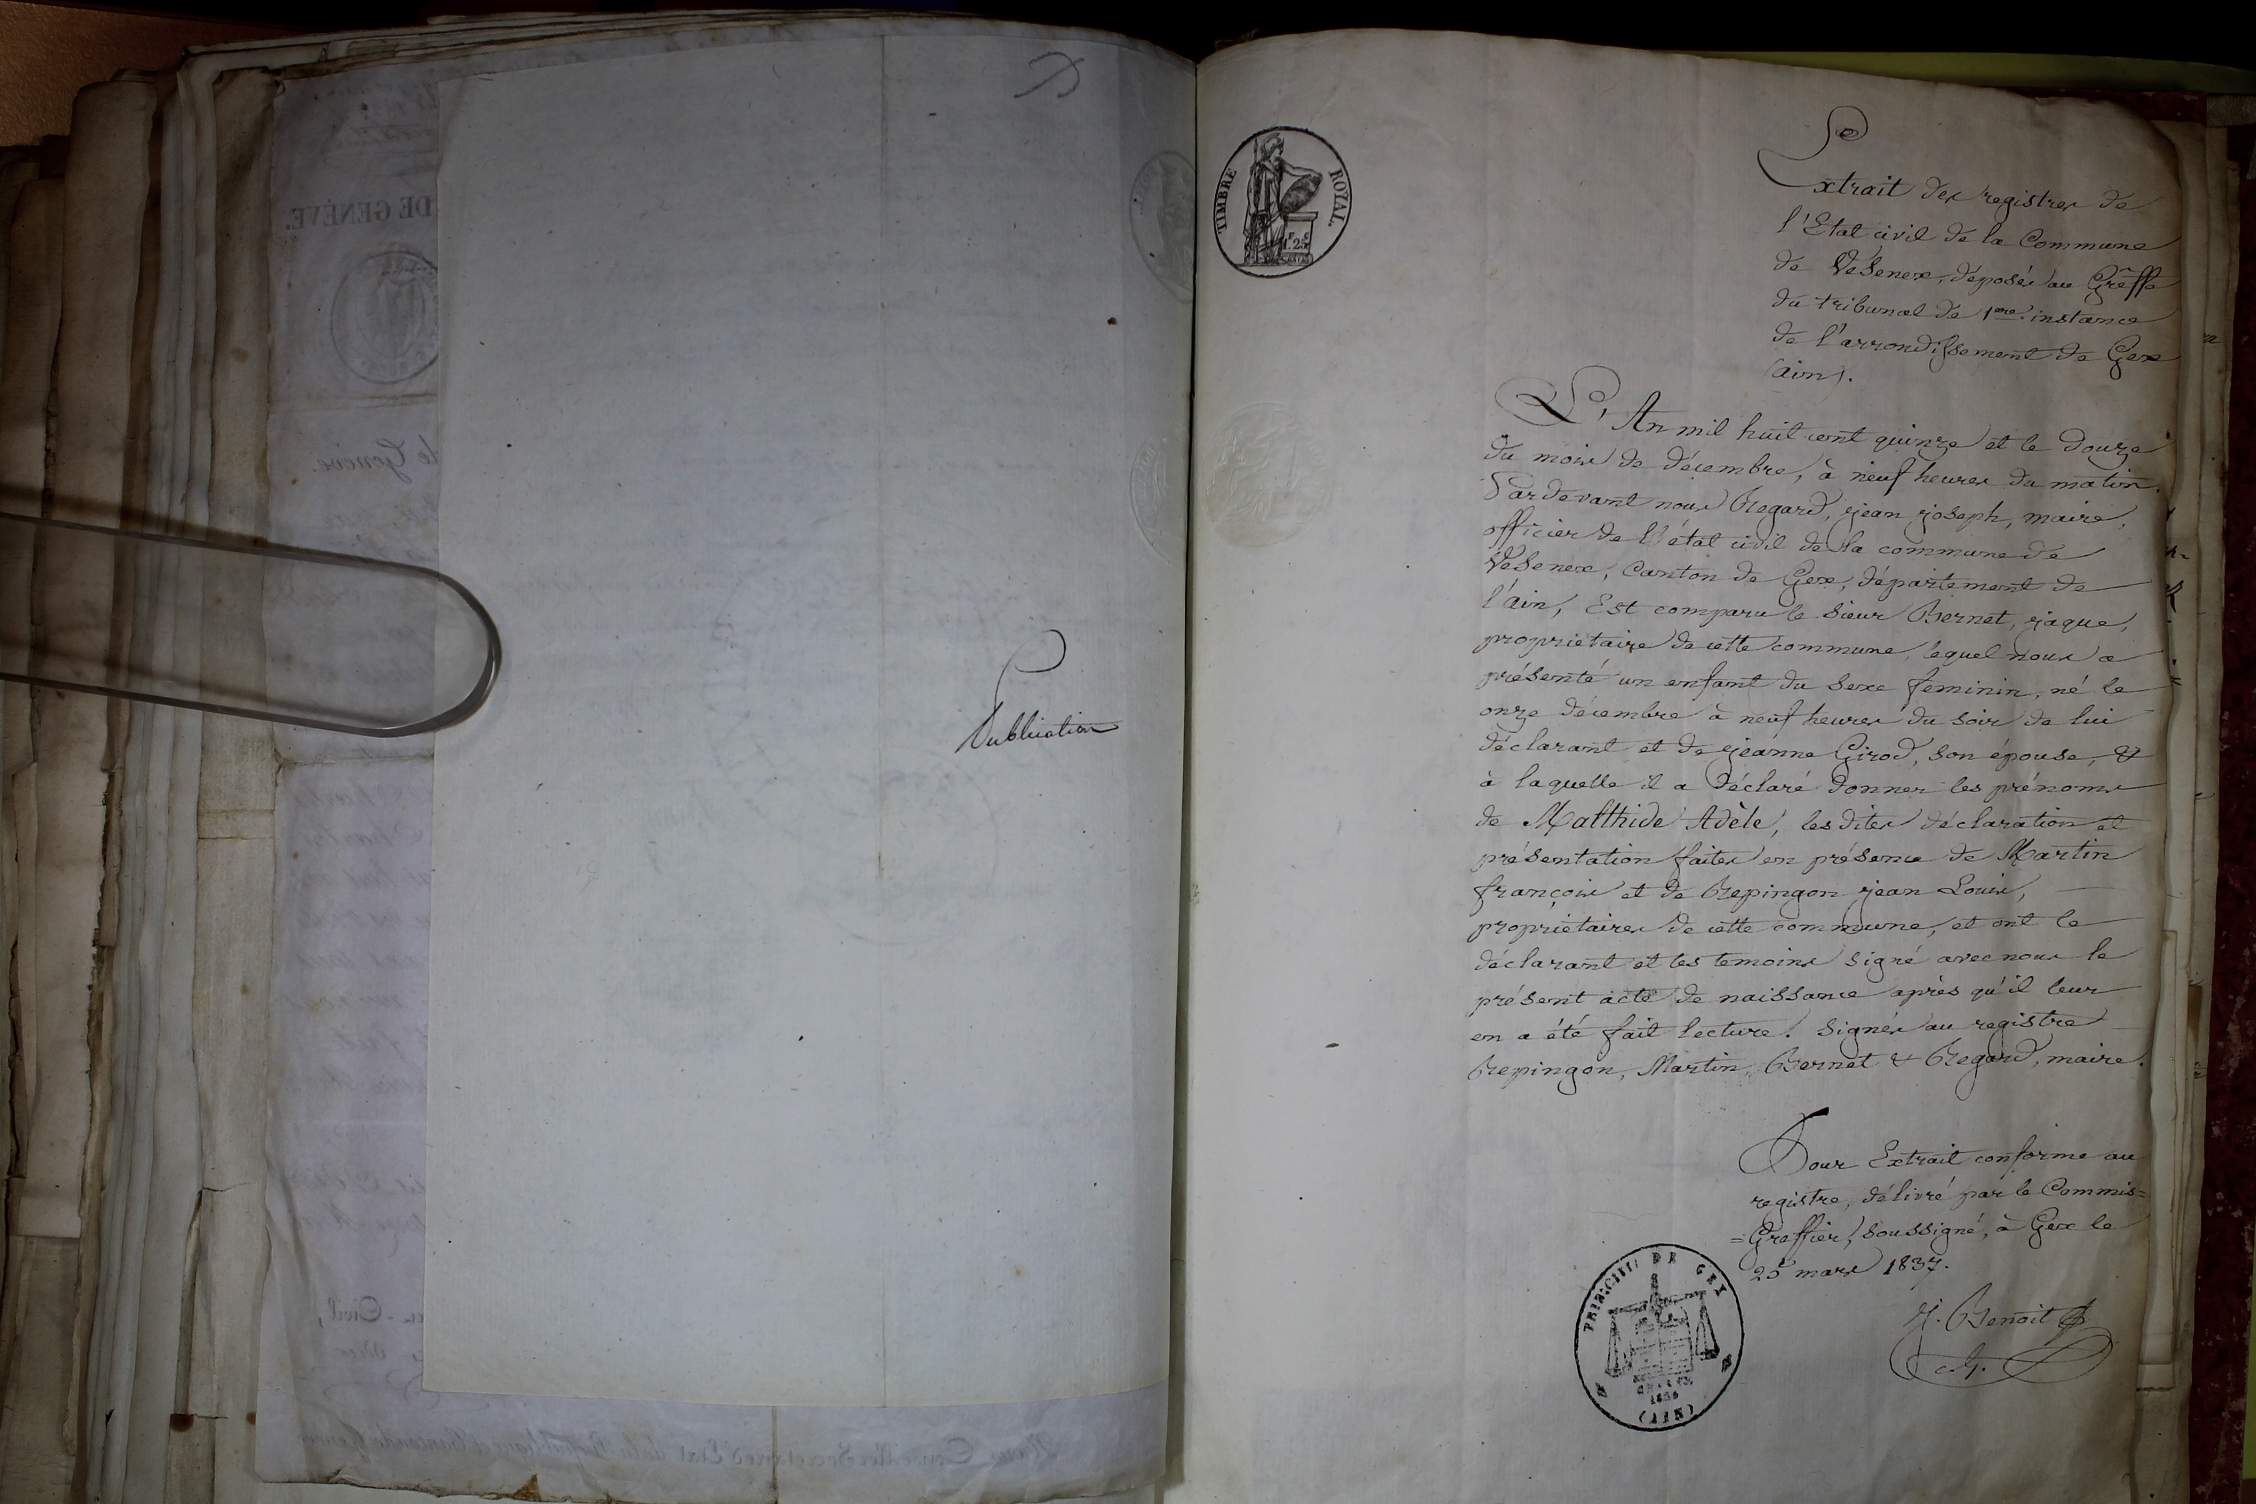 Publication
TIMBRE ROYAL
1.25
Extrait des registres de
l'Etat civil de la Commune
de Vésenex, déposés au Grêffe
du tribunal de 1ere. instance
de l'arrondissement de Gex
(ain).
L'An mil huit cent quinze et le douze
du mois de décembre, à neuf heures du matin.
Pardevant nous Regard, jean joseph, maire,
officier de l'état civil de la commune de
Vésenex, Canton de Gex, département de
l'ain, Est comparu le sieur Bernet, jaque,
propriétaire de cette commune, lequel nous a
présenté un enfant du sexe feminin, né le
onze décembre à neuf heures du soir de lui
déclarant et de jeanne Girod, son épouse, &
à laquelle il a déclaré donner les prénoms
de Malthide Adèle, les dites déclaration et
présentation faites en présence de Martin
françois et de Repingon jean Louis,
propriétaires de cette commune, et ont le
déclarant et les temoins signé avec nous le
présent acte de naissance après qu'il leur
en a été fait lecture. Signés au registre
Repingon, Martin, Bernet & Regard, maire.
Pour Extrait conforme au
registre, délivré par le Commis=
=Greffier, soussigné, à Gex le
25 mars 1837.
J. Benoit
c. G.
DE GEX
1830
(AIN)
DE GENÈVE.
de Genève.